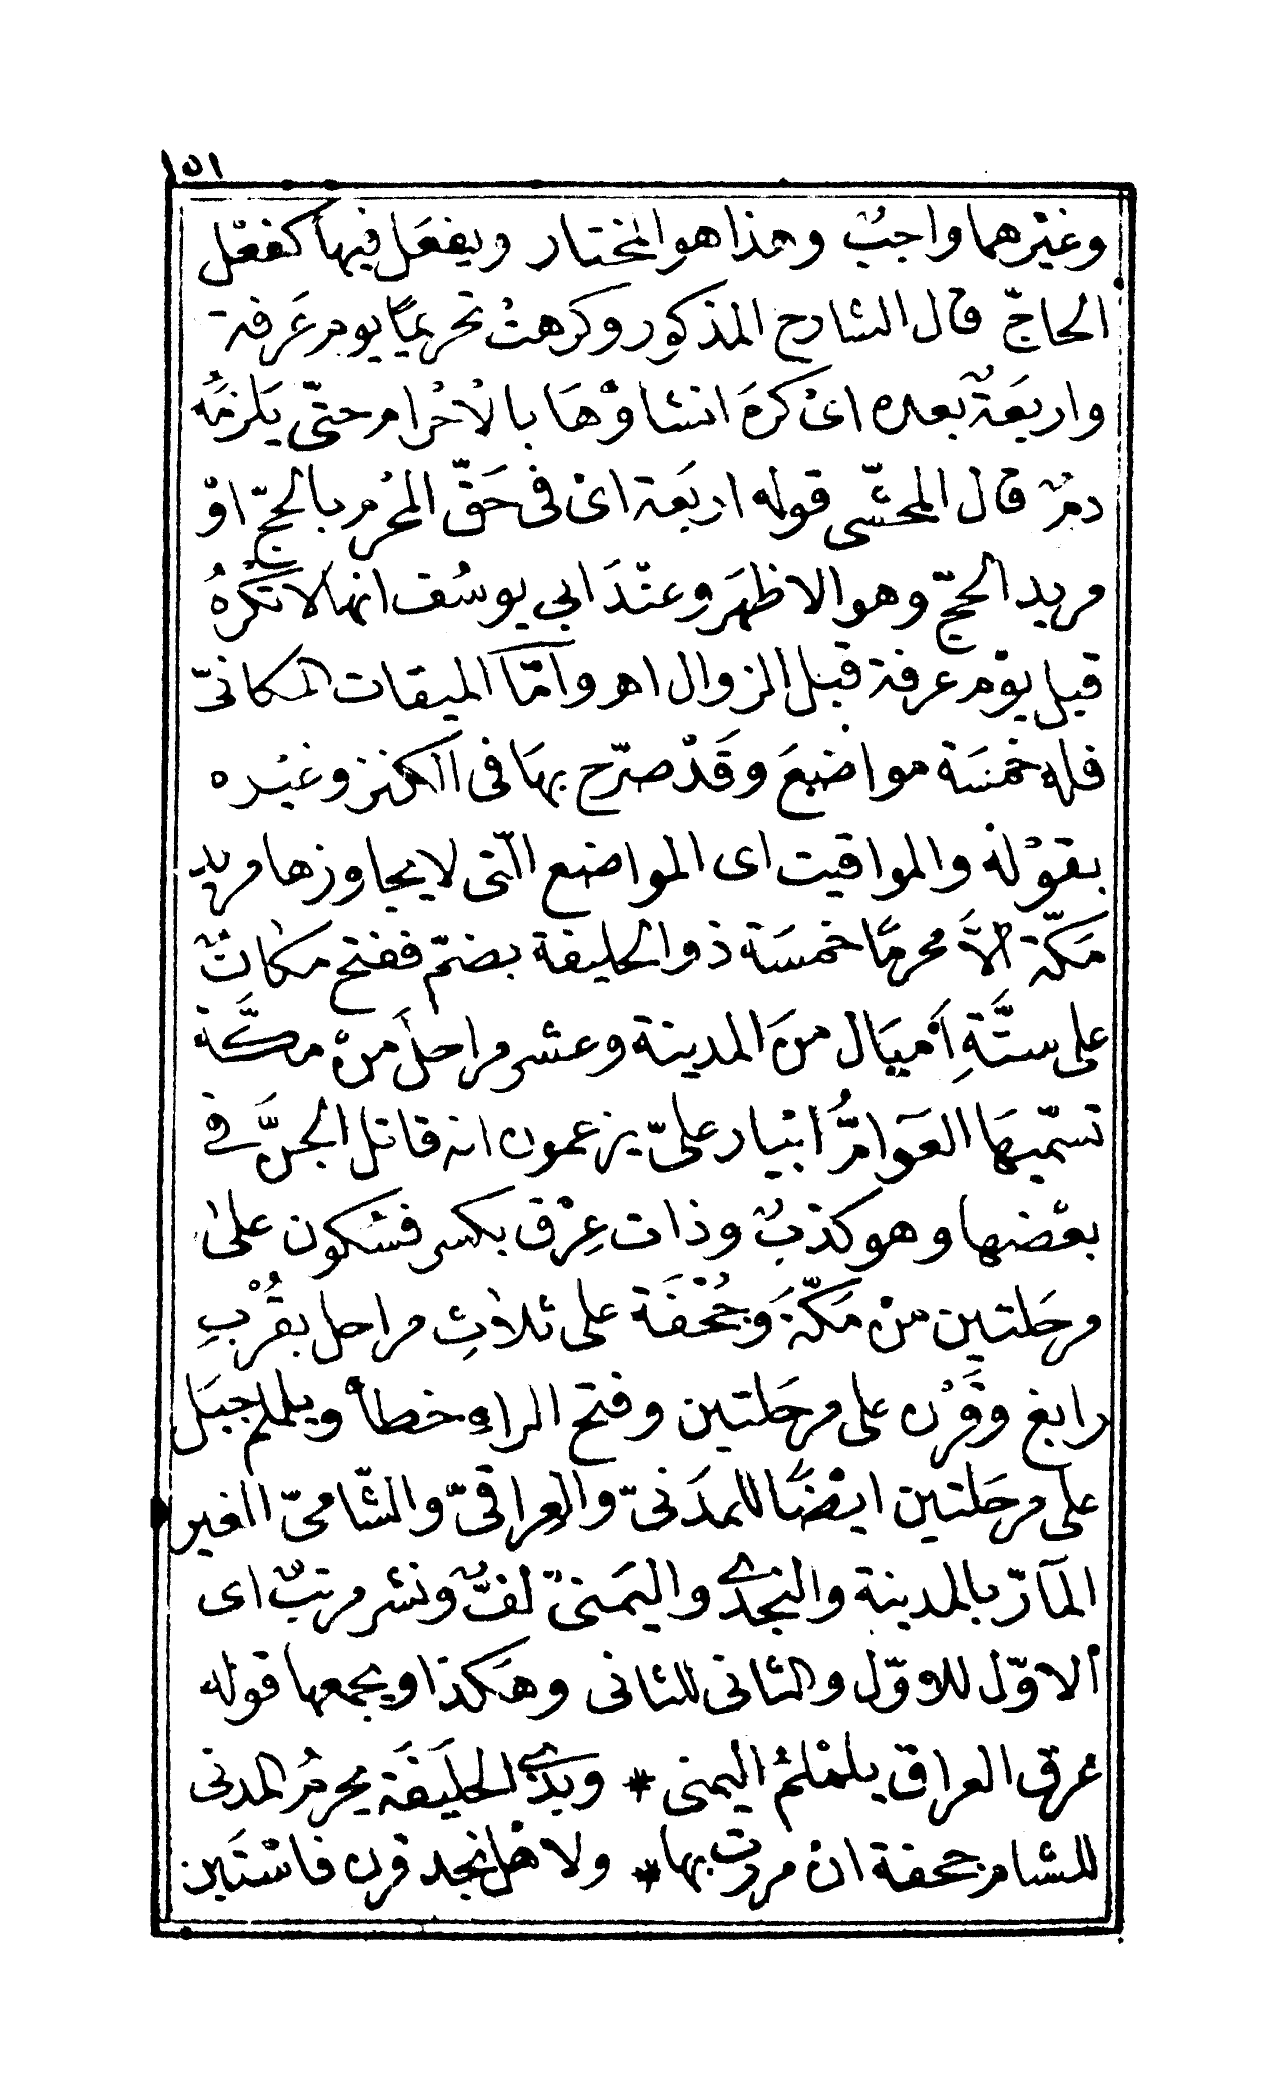 ١٥١
وغيْرهما واجبٌ وهذا هو المختار ويفعَل فيها كفعْل
الحاجّ قال الشارح المذكور وكرهتْ تحريمًا يوم عَرفة
واربعَةٌ بعده اىْ كرهَ انشاؤْهَا بالْاحْرام حتّى يَلزمَهُ
دمٌ قال المحشّى قوله اربَعة اى فى حَقّ المحْرم بالحجّ اوْ
مريد الحجّ وهو الاظهَر وعنْدَ ابي يوسُف انها لا تكْرهُ
قبل يوْم عرفة قبل الزوال اهـ وأمّا الميقات المكانىّ
فله خمْسَة مواضعَ وقَدْ صرّح بهَا فى الكنز وغيْره
بقوْله والمواقيت اى المواضع الّتى لا يجاوزها مريد
مَكّة الاَّ محرمًا خمسَة ذو الحليفة بضمّ ففتح مكانٌ
على ستَّةِ أمْيَال منَ المدينة وعشر مراحلَ منْ مكَّة
تسمّيهَا العَوامُّ أبْيار علىّ يزعمون انه قاتل الجنَّ في
بعْضها وهو كذبٌ وذات عِرْق بكسر فسْكون علىٰ
مرحَلتين منْ مَكّةَ وَجُحْفَة على ثلاثِ مراحل بقُرْبِ
رابغ وقَرْن على مرحَلتين وفتح الراءِ خطأ ويلملم جبَل
على مرحَلتين ايضًا للمدَنىّ والعراقىّ والشّامىّ الغير
المآرّ بالمدينة والنجْدي واليمَنىّ لفٌّ ونشر مرتبٌ اى
ألاوّل للاوّل والثانى للثانى وهكذا ويجمعها قوله
عرق العراق يلمْلمُ اليمنى * وبذي الحلَيفَة يحرمُ المدنى
للشام جحفة انْ مررت بها * ولاهْل نجد قرن فاسْتَبِن